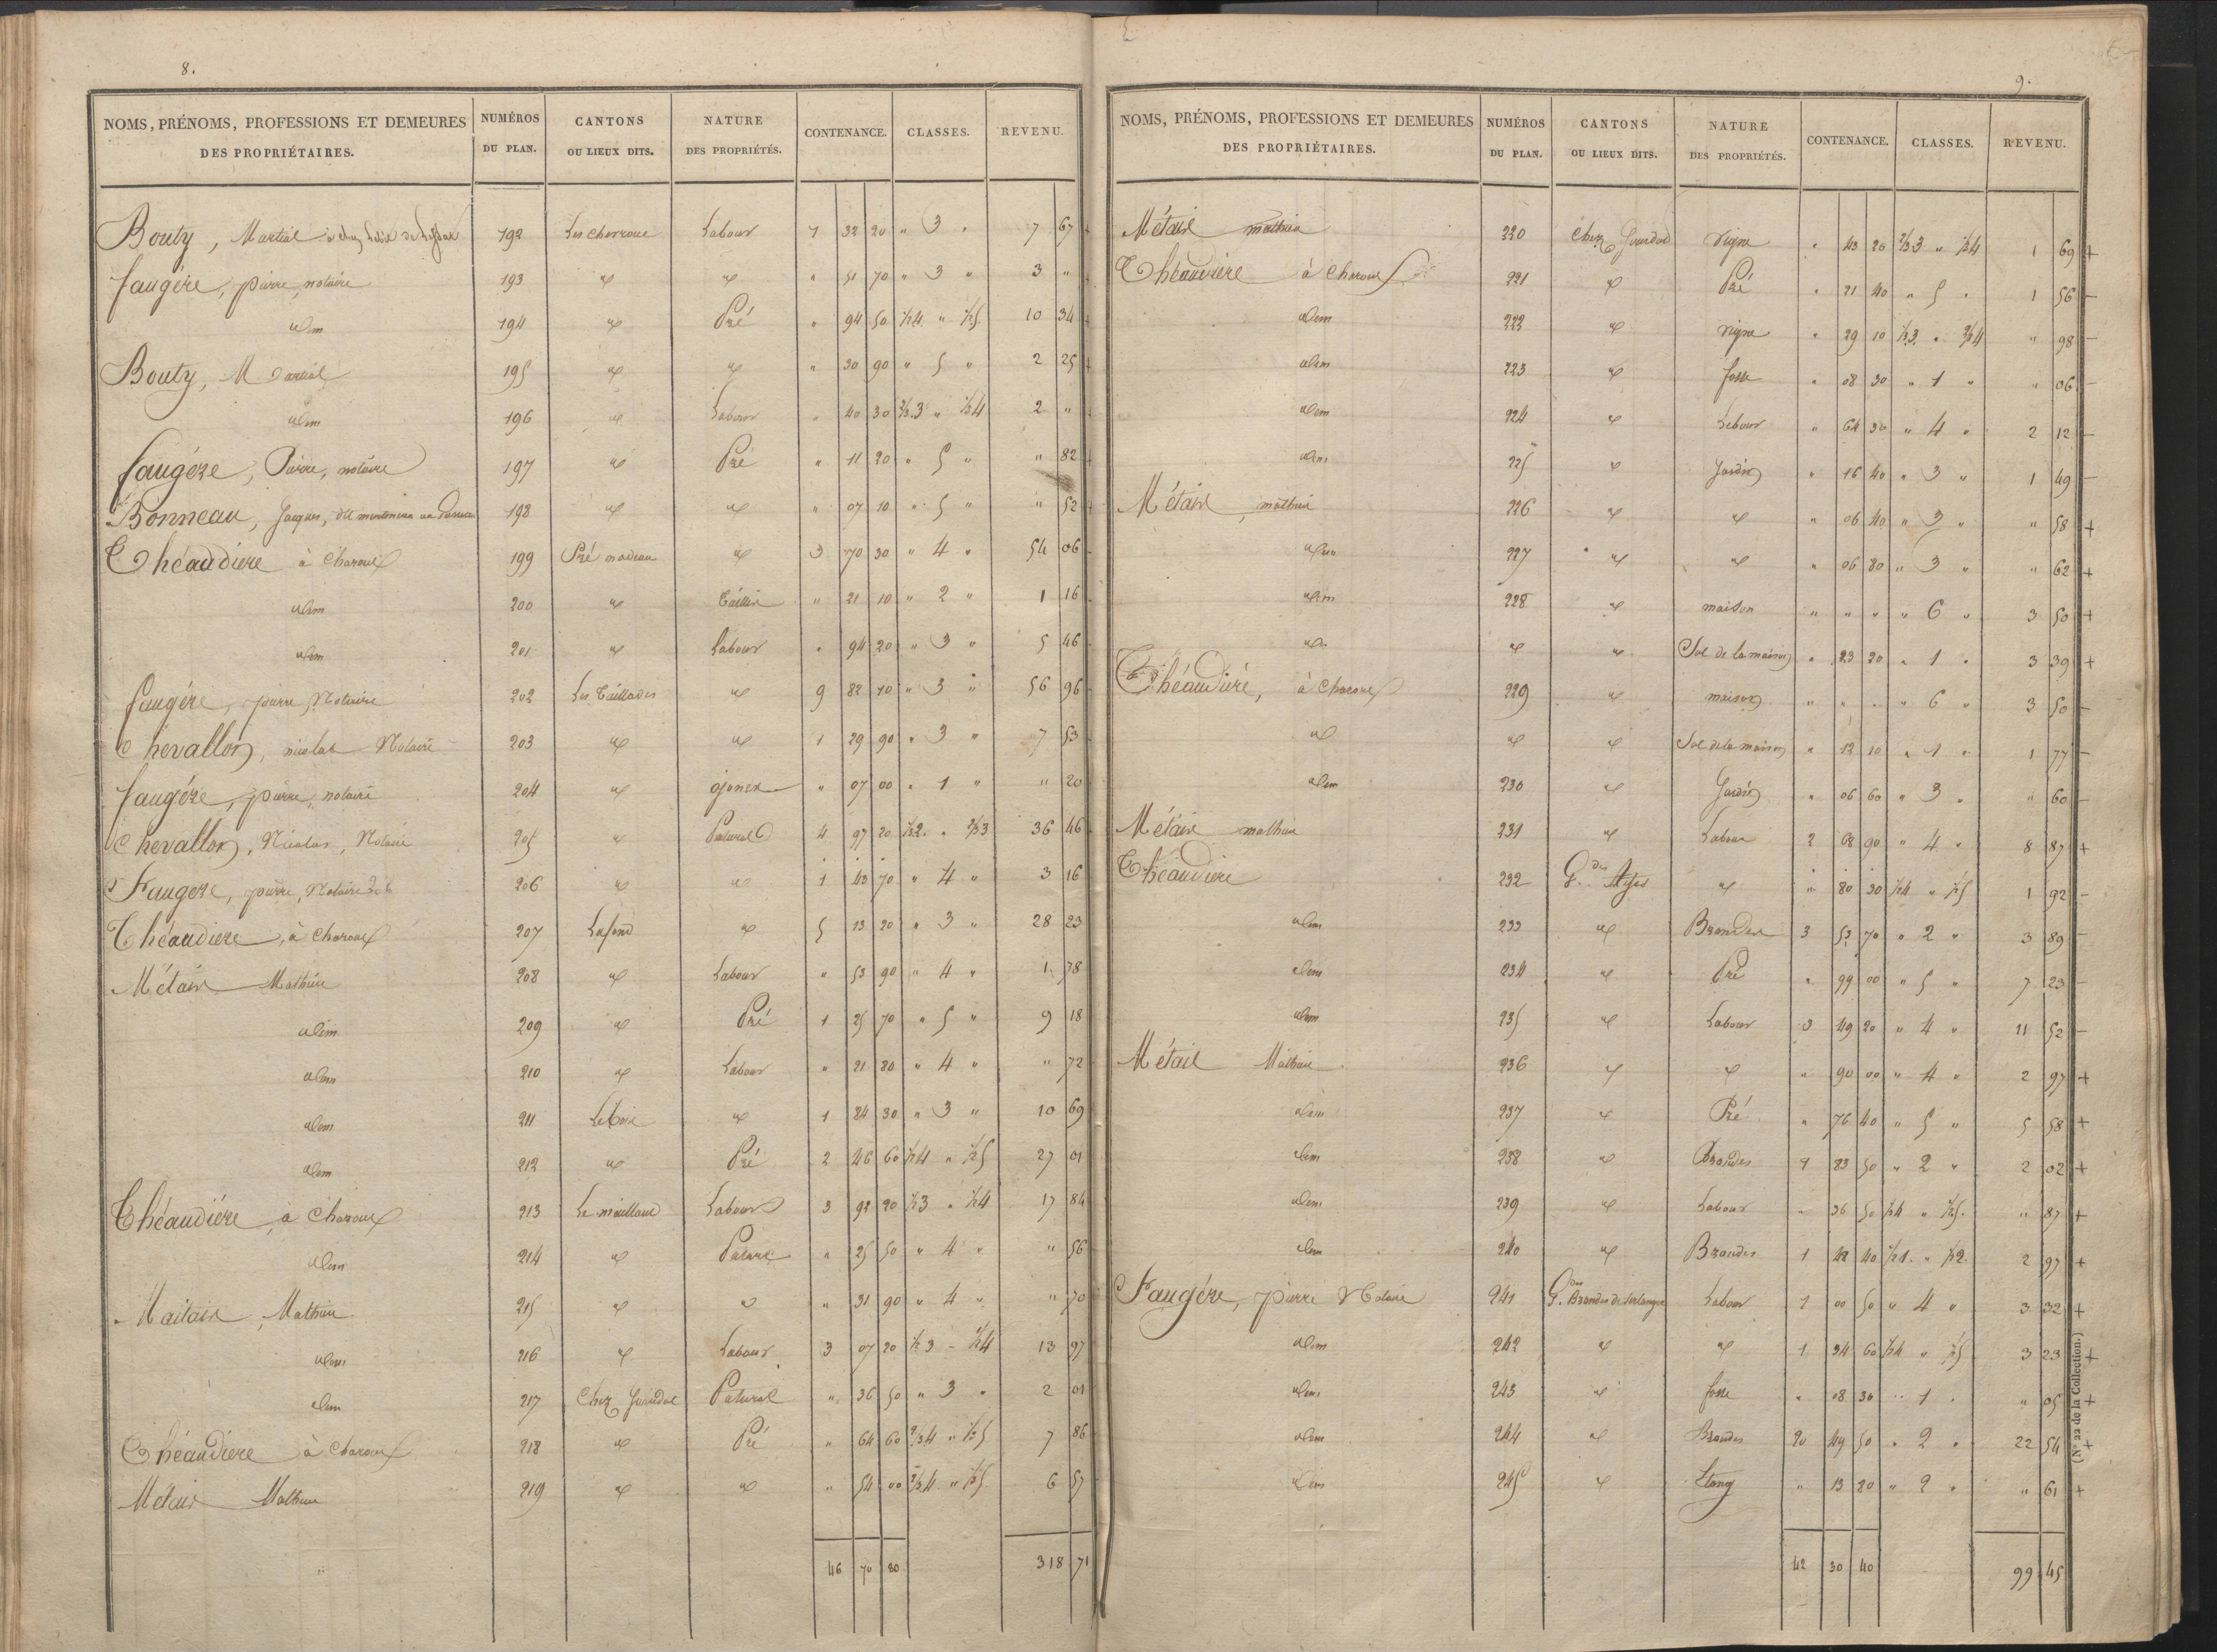 8.
NOMS, PRÉNOMS, PROFESSIONS ET DEMEURES DES PROPRIÉTAIRES. NUMÉROS DU PLAN. CANTONS OU LIEUX DITS. NATURE DES PROPRIÉTÉS. CONTENANCE. CLASSES. REVENU.
Bouty, Martial 192 Les cherroux Labour 1 32 20 " 3 " 7 67
faugére, pierre, notaire 193 id id " 51 70 " 3 " 3 "
idem 194 id Pré " 94 50 1/2 4 " 1/2 5 10 34
Bouty, Martial 195 id id " 30 90 " 5 " 2 25
idem 196 id Labour " 40 30 2/3 3 " 1/3 4 2 "
faugére, Pierre, notaire 197 id Pré " 11 20 " 5 " " 82
Bonneau, Jacques, dit 198 id id " 07 10 " 5 " " 52
Théaudiere à Charoux 199 Pré nadeau id 3 70 30 " 4 " 54 06
idem 200 id Taillis " 21 10 " 2 " 1 16
idem 201 id Labour " 94 20 " 3 " 5 46
faugére, pierre, Notaire 202 Les Taillades id 9 82 10 " 3 " 56 96
Chevallon, nicolas Notaire 203 id id 1 29 90 " 3 " 7 53
faugére, pierre, notaire 204 id " 07 00 " 1 " " 20
Chevallon, Nicolas, Notaire 205 id Patural 4 97 20 1/3 2 " 2/3 3 36 46
Faugere, pierre, Notaire 206 id id 1 43 70 " 4 " 3 16
Théaudiere, à Charoux 207 Lafond id 5 13 20 " 3 " 28 23
Métais Mathieu 208 id Labour " 53 90 " 4 " 1 78
idem 209 id Pré 1 25 70 " 5 " 9 18
idem 210 id Labour " 21 80 " 4 " " 72
idem 211 id 1 84 30 " 3 " 10 69
idem 212 id Pré 2 46 60 1/2 4 " 1/2 5 27 01
Théaudiére, à Charoux 213 Labour 3 92 20 1/2 3 " 1/2 4 17 84
idem 214 id Patural " 25 50 " 4 " " 56
Maitais, Mathieu 215 id id " 31 90 " 4 " " 70
idem 216 id Labour 3 07 20 1/2 3 " 1/2 4 13 97
idem 217 Chez Jourdod Patural " 36 50 " 3 " 2 01
Théaudiere à Charoux 218 id Pré " 64 60 2/3 4 " 1/3 5 7 86
Métais Mathieu 219 id id " 54 00 2/3 4 " 1/3 5 6 57
46 70 80 318 71
9.
NOMS, PRÉNOMS, PROFESSIONS ET DEMEURES DES PROPRIÉTAIRES. NUMÉROS DU PLAN. CANTONS OU LIEUX DITS. NATURE DES PROPRIÉTÉS. CONTENANCE. CLASSES. REVENU.
Métais mathieu 220 Chez Jourdod Vigne " 43 20 2/3 3 " 1/3 4 1 69 +
Théaudiére à Charoux 221 id Pré " 21 40 " 5 " 1 56 -
idem 222 id vigne " 29 10 1/3 3 " 2/3 4 " 98 -
idem 223 id fosse " 08 30 " 1 " " 06 -
idem 224 id Labour " 64 30 " 4 " 2 12 -
idem 225 id Jardin " 16 40 " 3 " 1 49 -
Métais, mathieu 226 id id " 06 40 " 3 " " 58 +
idem 227 id id " 06 80 " 3 " " 62 +
idem 228 id maison " " " " 6 " 3 50 +
id id id Sol de la maison " 23 20 " 1 " 3 39 +
Théaudiére, à Charoux 229 id maison " " " " 6 " 3 50 -
id id id Sol de la maison " 12 10 " 1 " 1 77 -
idem 230 id Jardin " 06 60 " 3 " " 60 -
Métais mathieu 231 id Labour 2 68 90 " 4 " 8 87 +
Théaudiere 232 id " 80 30 1/2 4 " 1/2 5 1 92 -
idem 233 id Brandes 3 53 70 " 2 " 3 89 -
idem 234 id Pré " 99 00 " 5 " 7 23 -
idem 235 id Labour 3 49 20 " 4 " 11 52 -
Métais Mathieu 236 id id " 90 00 " 4 " 2 97 +
idem 237 id Pré " 76 40 " 5 " 5 58 +
idem 238 id Brandes 1 83 50 " 2 " 2 02 +
idem 239 id Labour " 36 50 1/2 4 " 1/2 5 " 87 +
idem 240 id Brandes 1 48 40 1/2 1 " 1/2 2 2 97 +
Faugére, pierre Notaire 241 Labour 1 00 50 " 4 " 3 32 +
idem 242 id id 1 34 60 1/2 4 " 1/2 5 3 23 +
idem 243 id fosse " 08 30 " 1 " " 05 +
idem 244 id Brandes 20 49 50 " 2 " 22 54 +
idem 245 id Etang " 13 20 " 2 " " 61 +
42 30 40 99 45
(N° 22 de la Collection.)